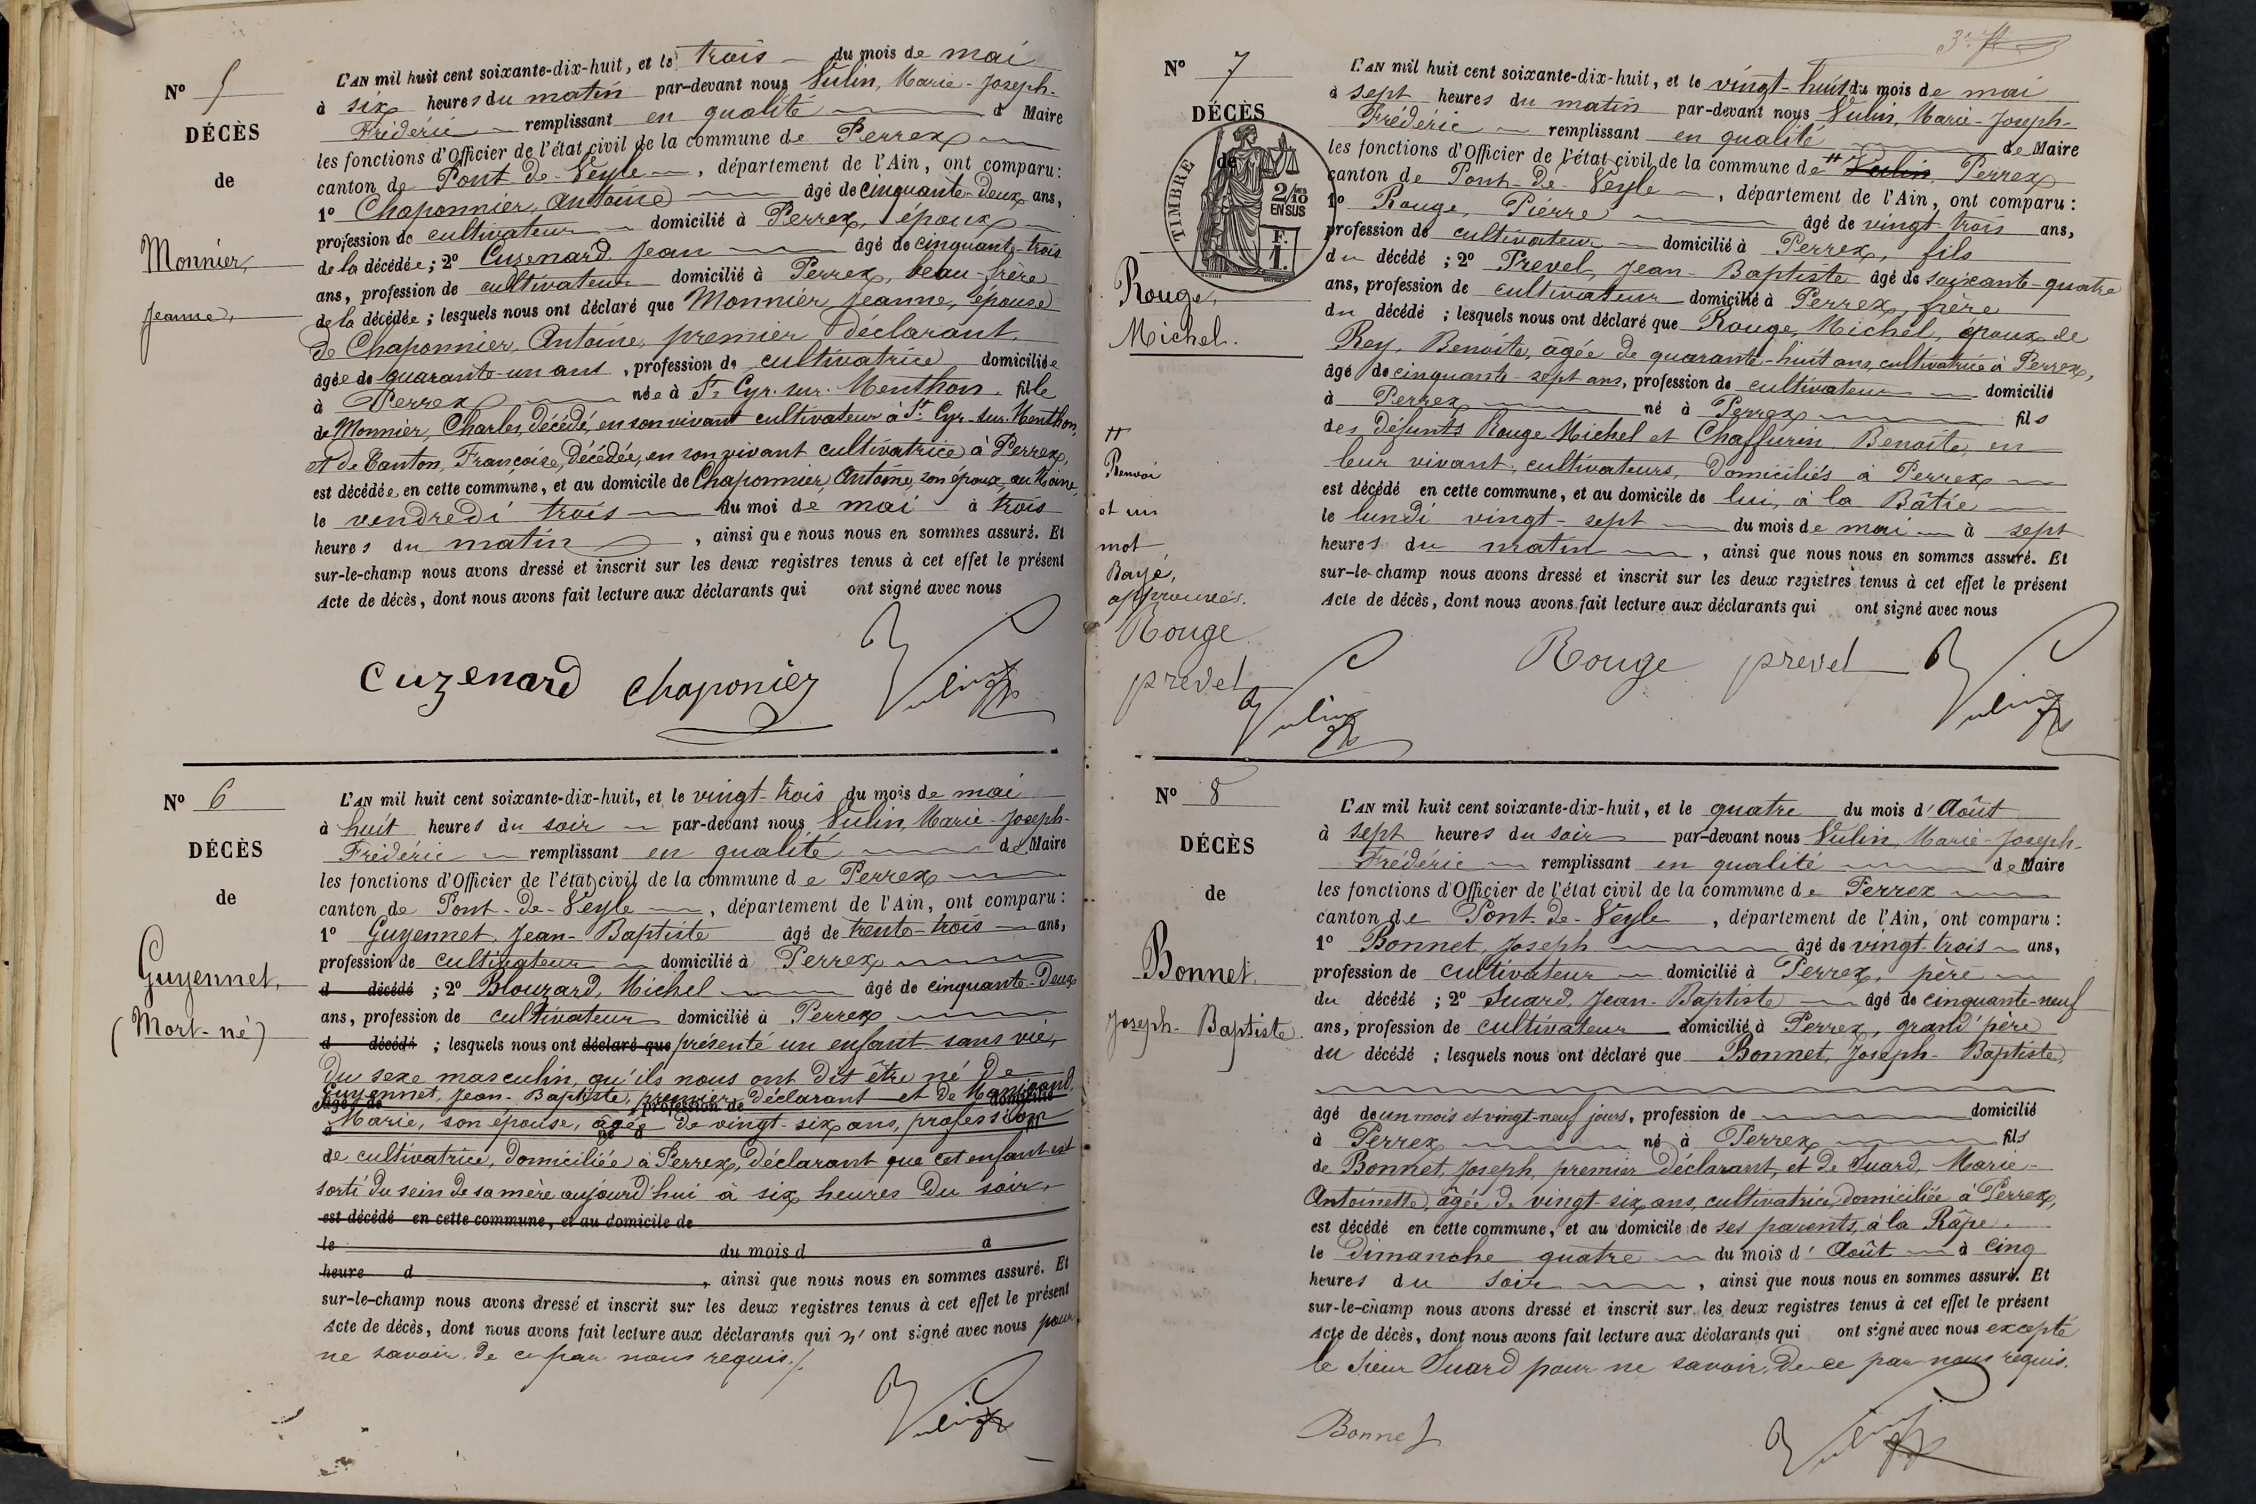 Nº 5
DÉCÈS
de
Monnier,
Jeanne,
L'AN mil huit cent soixante-dix-huit, et le trois du mois de mai
à six heures du matin par-devant nous Vulin, Marie-Joseph-
Frédéric remplissant en qualité d Maire
les fonctions d'Officier de l'état civil de la commune de Perrex
canton de Pont-de-Veyle, département de l'Ain, ont comparu:
1º Chaponnier, Antoine âgé de cinquante-deux ans,
profession de cultivateur domicilié à Perrex, époux
de la décédée; 2º Cuzenard Jean âgé de cinquante-trois
ans, profession de cultivateur domicilié à Perrex, beau-frère
de la décédée; lesquels nous ont déclaré que Monnier Jeanne, épouse
de Chaponnier, Antoine, premier déclarant,
âgée de quarante-un ans, profession de cultivatrice domiciliée
à Perrex née à St Cyr-sur-Menthon, fille
de Monnier, Charles, décédé, en son vivant cultivateur à St Cyr-sur-Menthon,
et de Canton, Françoise, décédée, en son vivant cultivatrice à Perrex,
est décédée en cette commune, et au domicile de Chaponnier, Antoine, son époux, au
le vendredi trois du moi de mai à trois
heures du matin, ainsi que nous nous en sommes assuré. Et
sur-le-champ nous avons dressé et inscrit sur les deux registres tenus à cet effet le présent
Acte de décès, dont nous avons fait lecture aux déclarants qui ont signé avec nous
Cuzenard Chaponier Vulin
Nº 6
DÉCÈS
de
Guyennet,
(Mort-né)
L'AN mil huit cent soixante-dix-huit, et le vingt-trois du mois de mai
à huit heures du soir par-devant nous Vulin, Marie-Joseph-
Frédéric remplissant en qualité de Maire
les fonctions d'Officier de l'état civil de la commune de Perrex
canton de Pont-de-Veyle, département de l'Ain, ont comparu:
1º Guyennet, Jean-Baptiste âgé de trente-trois ans,
profession de cultivateur domicilié à Perrex
d décédé; 2º Blouzard, Michel âgé de cinquante-deux
ans, profession de cultivateur domicilié à Perrex
d décédé; lesquels nous ont déclaré que présenté un enfant sans vie,
du sexe masculin, qu'ils nous ont dit être né de
Guyennet, Jean-Baptiste, premier déclarant et de Manigand,
âgé de profession de domicilié
Marie, son épouse, âgée de vingt-six ans, profession
à né à fil
de cultivatrice, domiciliée à Perrex, déclarant que cet enfant est
sorti du sein de sa mère aujourd'hui à six heures du soir,
est décédé en cette commune, et au domicile de
le du mois d à
heure d, ainsi que nous nous en sommes assuré. Et
sur-le-champ nous avons dressé et inscrit sur les deux registres tenus à cet effet le présent
Acte de décès, dont nous avons fait lecture aux déclarants qui n'ont signé avec nous pour
ne savoir de ce par nous requis./.
Vulin
Nº 7
DÉCÈS
de
TIMBRE
2/10
EN SUS
F.
1.
Rouge,
Michel.
#
Renvoi
et un
mot
Rayé,
approuvés.
Rouge
prevel
Vulin
L'AN mil huit cent soixante-dix-huit, et le vingt-huit du mois de mai
à sept heures du matin par-devant nous Vulin, Marie-Joseph-
Frédéric remplissant en qualité de Maire
les fonctions d'Officier de l'état civil de la commune de # Vulin Perrex
canton de Pont-de-Veyle, département de l'Ain, ont comparu:
1º Rouge, Pierre âgé de vingt-trois ans,
profession de cultivateur domicilié à Perrex, fils
du décédé; 2º Prevel, Jean-Baptiste âgé de soixante-quatre
ans, profession de cultivateur domicilié à Perrex, frère
du décédé; lesquels nous ont déclaré que Rouge, Michel, époux de
Rey, Benoite, âgée de quarante-huit ans, cultivatrice à Perrex,
âgé de cinquante-sept ans, profession de cultivateur domicilié
à Perrex né à Perrex fils
des défunts Rouge Michel et Chaffurin, Benoite, en
leur vivant, cultivateurs, domiciliés à Perrex
est décédé en cette commune, et au domicile de lui, à la Bâtie
le lundi vingt-sept du mois de mai à sept
heures du matin, ainsi que nous nous en sommes assuré. Et
sur-le-champ nous avons dressé et inscrit sur les deux registres tenus à cet effet le présent
Acte de décès, dont nous avons fait lecture aux déclarants qui ont signé avec nous
Rouge prevel Vulin
Nº 8
DÉCÈS
de
Bonnet,
Joseph-Baptiste.
L'AN mil huit cent soixante-dix-huit, et le quatre du mois d'Août
à sept heures du soir par-devant nous Vulin, Marie-Joseph-
Frédéric remplissant en qualité de Maire
les fonctions d'Officier de l'état civil de la commune de Perrex
canton de Pont-de-Veyle, département de l'Ain, ont comparu:
1º Bonnet, Joseph âgé de vingt-trois ans,
profession de cultivateur domicilié à Perrex, père
du décédé; 2º Suard, Jean-Baptiste âgé de cinquante-neuf
ans, profession de cultivateur domicilié à Perrex, grand'père
du décédé; lesquels nous ont déclaré que Bonnet, Joseph-Baptiste,
âgé de un mois et vingt-neuf jours, profession de domicilié
à Perrex né à Perrex fils
de Bonnet, Joseph, premier déclarant, et de Suard, Marie-
Antoinette, âgée de vingt six ans, cultivatrice, domiciliée à Perrex,
est décédé en cette commune, et au domicile de ses parents, à la Râpe.
le dimanche quatre du mois d'Août à cinq
heures du soir, ainsi que nous nous en sommes assuré. Et
sur-le-champ nous avons dressé et inscrit sur les deux registres tenus à cet effet le présent
Acte de décès, dont nous avons fait lecture aux déclarants qui ont signé avec nous excepté
le sieur Suard pour ne savoir, de ce par nous requis.
Bonnet Vulin